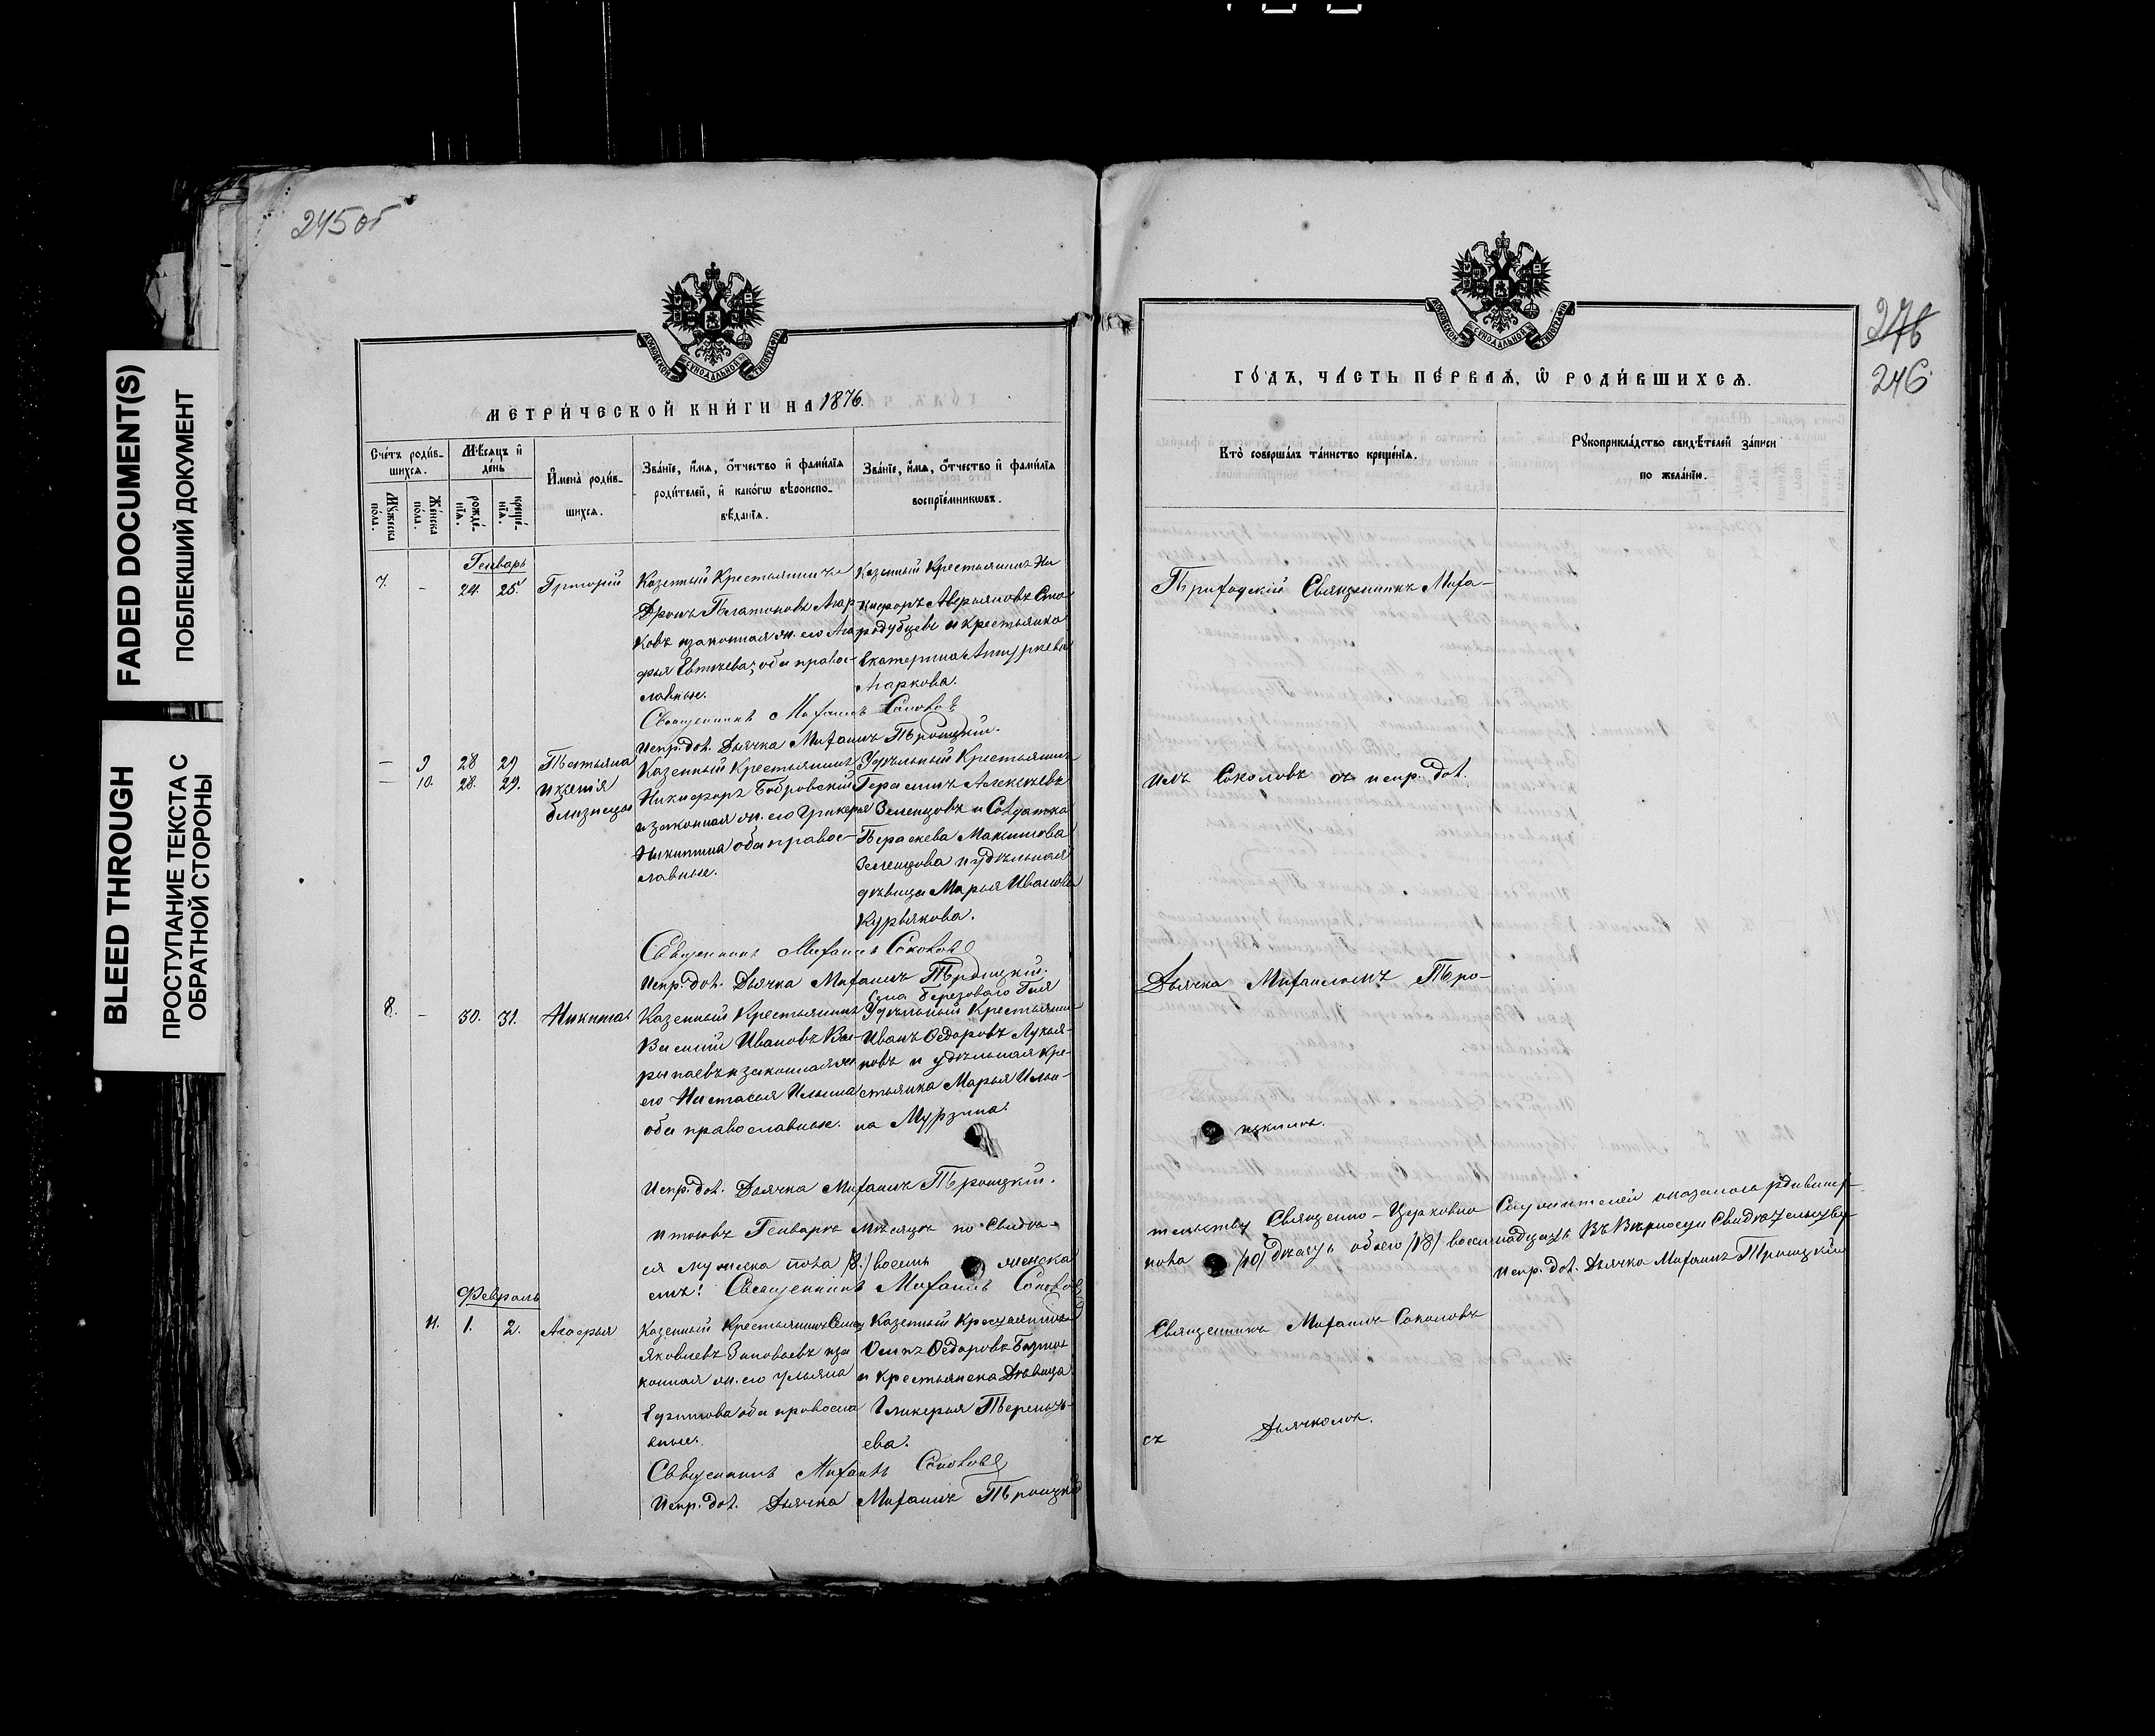 FADED DOCUMENT(S)
ПОБЛЕКШИЙ ДОКУМЕНТ
BLEED THROUGH
ПРОСТУПАНИЕ ТЕКСТА С
ОБРАТНОЙ СТОРОНЫ
245 об
МОСКОВСКОЙ СѴНОДАЛЬНОЙ ТИПОГРАФІИ
МЕТРИ́ЧЕСКОЙ КНИ́ГИ НА 1876.
Сче́тъ роди́в-
шихсѧ.
Мꙋ́жеска
по́ла.
Же́нска
по́ла.
Мѣ́сѧцъ и҆
де́нь
рожде́-
нїѧ.
креще́-
нїѧ.
И҆мена̀ роди́в-
шихсѧ.
Зва́нїе, и҆́мѧ, ѻ҆́тчество и҆ фами́лїѧ
роди́телей, и҆ како́гѡ вѣроиспо-
вѣ́данїѧ.
Зва́нїе, и҆́мѧ, ѻ҆́тчество и҆ фами́лїѧ
воспрїе́мникѡвъ.
Генварь
7. - 24. 25. Григорій
Казенный Крестьянинъ
Платоновъ
ковъ и законная ж. его
оба правос-
лавные.
Казенный Крестьянинъ Ни
кифоръ Аверьяновъ Ста
родубцевъ и крестьянка
Екатерина
Маркова.
Священникъ Михаилъ Соколовъ
Испр. дол. Дьячка Михаилъ Троицкій.
— 9 28 29 Татьяна
— 10. 28. 29. и Ксенія
близнецы
Казенный Крестьянинъ
Никифоръ Бобровскій
и законная ж. его
Никитина оба правос-
лавные.
Удѣльный Крестьянинъ
Герасимъ Алексѣевъ
Земенцовъ и Солдатка
Параскева Максимова
Земенцова и удѣльная
дѣвица Марья Иванова
Курьякова.
Священникъ Михаилъ Соколовъ
Испр. дол. Дьячка Михаилъ Троицкій.
8. - 30. 31. Никита
Казенный Крестьянинъ
Василій Ивановъ Ва-
и законная ж.
его Настасья Ильина
оба православные.
Села Березоваго Гая
Удѣльный Крестьянин
Иванъ Ѳедоровъ Лукья-
новъ и удѣльная кре-
стьянка Марья Ильи-
на Мурзина.
Испр. дол. Дьячка Михаилъ Троицкій.
Итогъ Генварь Мѣсяцъ по Свидѣ-
ся мужеска пола (8.) восемь женска
емъ: Священникъ Михаилъ Соколовъ
Февраль
11. 1. 2. Агаѳья
Казенный Крестьянинъ
Яковлевъ Зиновьевъ и за
конная ж. его Ульяна
Ефимова оба правосла
вные.
Казенный Крестьянинъ
Осипъ Ѳедоровъ
и крестьянска Дѣвица
Гликерья Терентъ-
ева.
Священникъ Михаилъ Соколовъ
Испр. дол. Дьячка Михаилъ Троицкій
МОСКОВСКОЙ СѴНОДАЛЬНОЙ ТИПОГРАФІИ
246
ГО́ДЪ, ЧА́СТЬ ПЕ́РВАѦ, Ѡ҆ РОДИ́ВШИХСѦ.
Кто̀ соверша́лъ та́инство креще́нїѧ.
Рꙋкоприкла́дство свидѣ́телей за́писи
по жела́нїю.
Приходскій Священникъ Миха-
илъ Соколовъ съ испр. дол.
Дьячка Михаиломъ Тро-
ицкимъ.
тельству Священно-Церковно Служителей оказалось родивших
пола (10) десять обоего (18) восемнадцать Въ Вѣрности Свидѣтельству
Испр. дол. Дьячка Михаилъ Троицкій
Священникъ Михаилъ Соколовъ
съ Дьячкомъ.